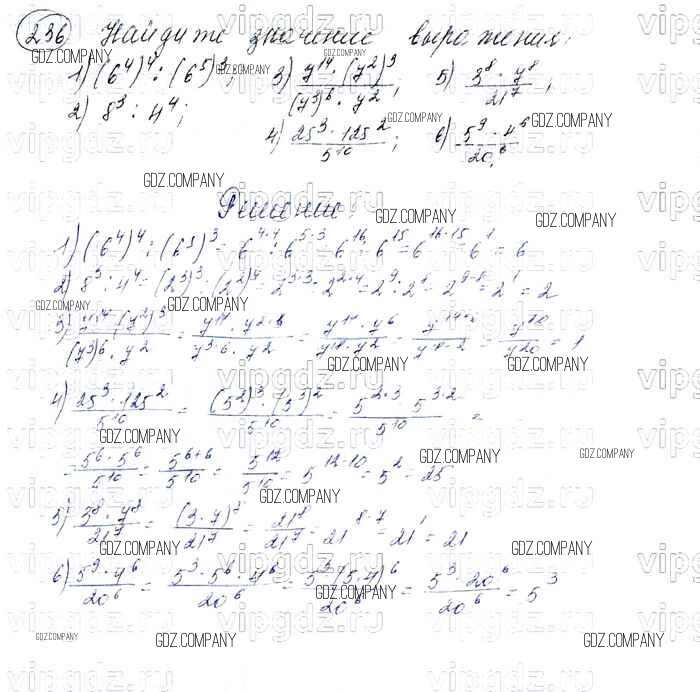 236 Найдите значение выражения:
1) (6^4)^4 : (6^5)^3; 3) \frac{7^{14} · (7^2)^3}{(7^3)^6 · 7^2}; 5) \frac{3^8 · 7^8}{21^7};
2) 8^3 : 4^4; 4) \frac{25^3 · 125^2}{5^{10}}; 6) \frac{5^9 · 4^6}{20^6}.
Решение.
1) (6^4)^4 : (6^5)^3 = 6^{4·4} : 6^{5·3} = 6^{16} : 6^{15} = 6^{16-15} = 6^1 = 6
2) 8^3 : 4^4 = (2^3)^3 : (2^2)^4 = 2^{3·3} : 2^{2·4} = 2^9 : 2^8 = 2^{9-8} = 2^1 = 2
3) \frac{7^{14} · (7^2)^3}{(7^3)^6 · 7^2} = \frac{7^{14} · 7^{2·3}}{7^{3·6} · 7^2} = \frac{7^{14} · 7^6}{7^{18} · 7^2} = = \frac{7^{20}}{7^{20}} = 1
4) \frac{25^3 · 125^2}{5^{10}} = \frac{(5^2)^3 · (5^3)^2}{5^{10}} = \frac{5^{2·3} · 5^{3·2}}{5^{10}} =
= \frac{5^6 · 5^6}{5^{10}} = \frac{5^{6+6}}{5^{10}} = \frac{5^{12}}{5^{10}} = 5^{12-10} = 5^2 = 25
5) \frac{3^8 · 7^8}{21^7} = \frac{(3·7)^8}{21^7} = \frac{21^8}{21^7} = 21^{8-7} = 21^1 = 21
6) \frac{5^9 · 4^6}{20^6} = \frac{5^3 · 5^6 · 4^6}{20^6} = \frac{5^3 · (5·4)^6}{20^6} = \frac{5^3 · 20^6}{20^6} = 5^3
GDZ.COMPANY
vipgdz.ru